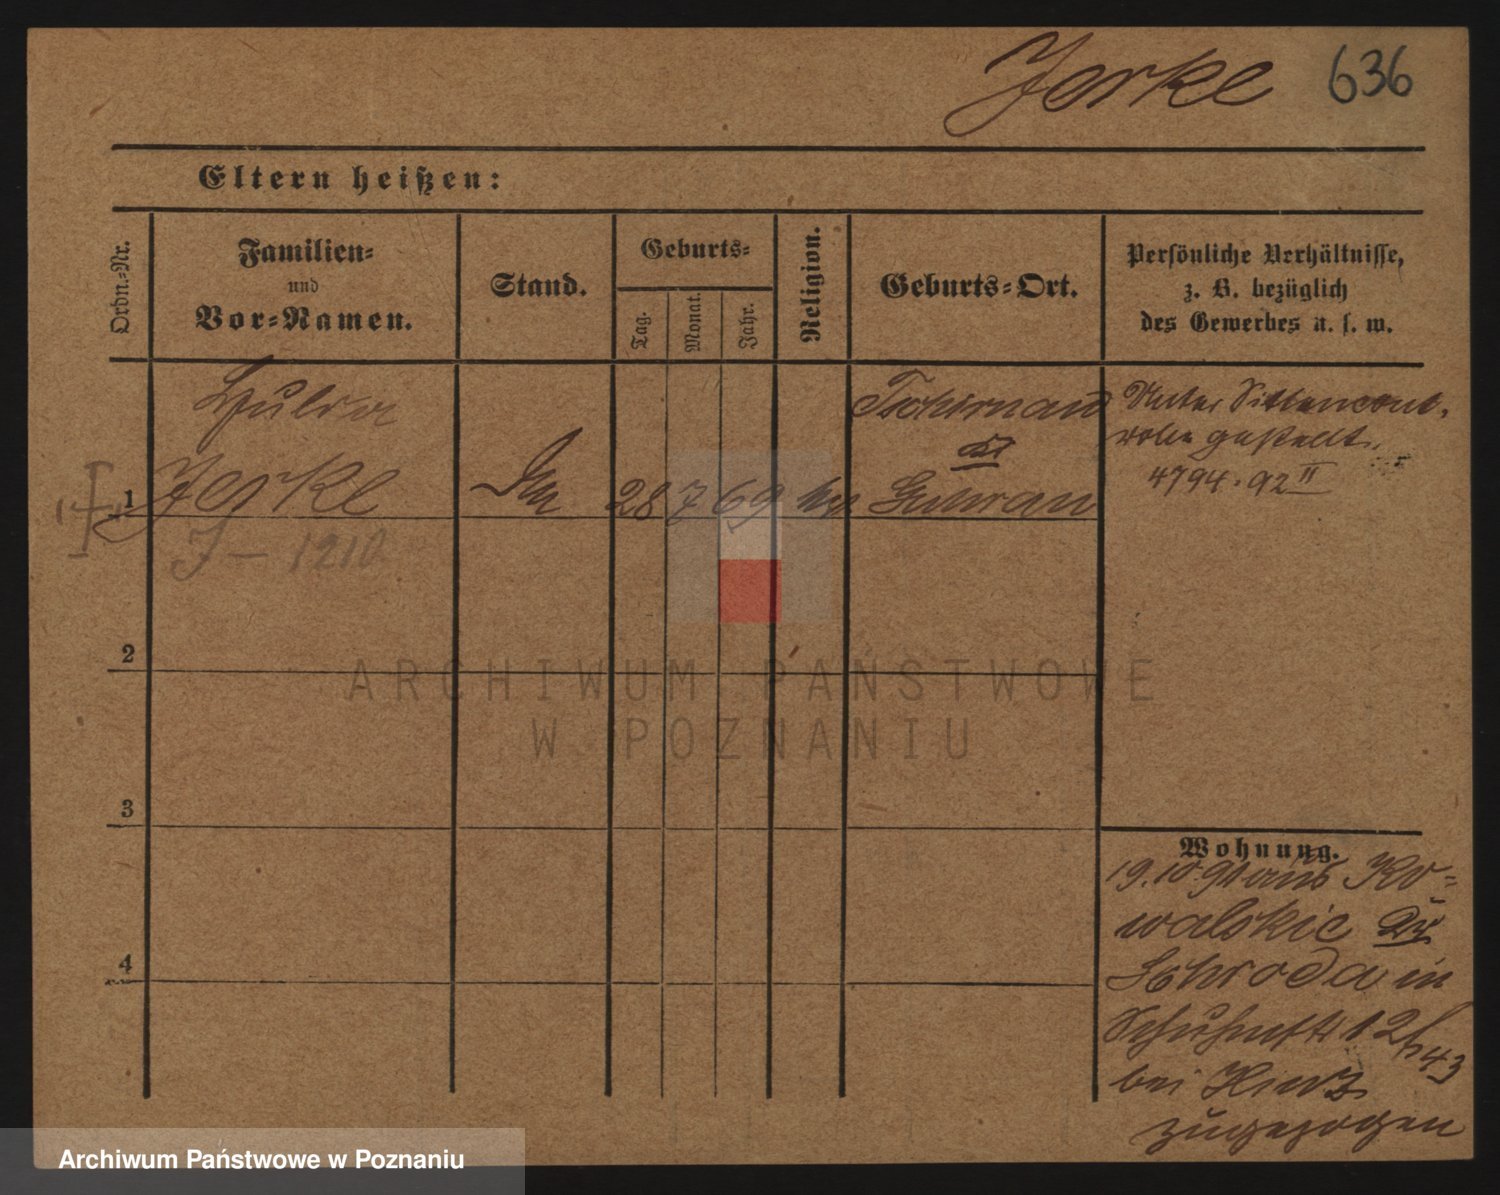 Jerke 636
Eltern heißen:
Ordn.-Nr.
Familien-
und
Vor-Namen.
Stand.
Geburts-
Tag.
Monat.
Jahr.
Religion.
Geburts-Ort.
Persönliche Verhältnisse,
z. B. bezüglich
des Gewerbes u. s. w.
Hulda
1 Jerke
28 7 69
J – 1210
Tschirnau
Guhrau
Unter Sittencont.
rolle gestellt.
4794. 92 II
2
3
4
Wohnung.
19.10.91 aus Ko=
walskie Kr
Schroda in
12
bei
zugezogen
ARCHIWUM PAŃSTWOWE
W POZNANIU
Archiwum Państwowe w Poznaniu